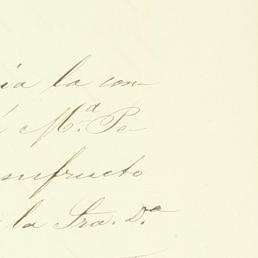 ia la con-
Mª Pe-
sufructo
la Sra. Dª